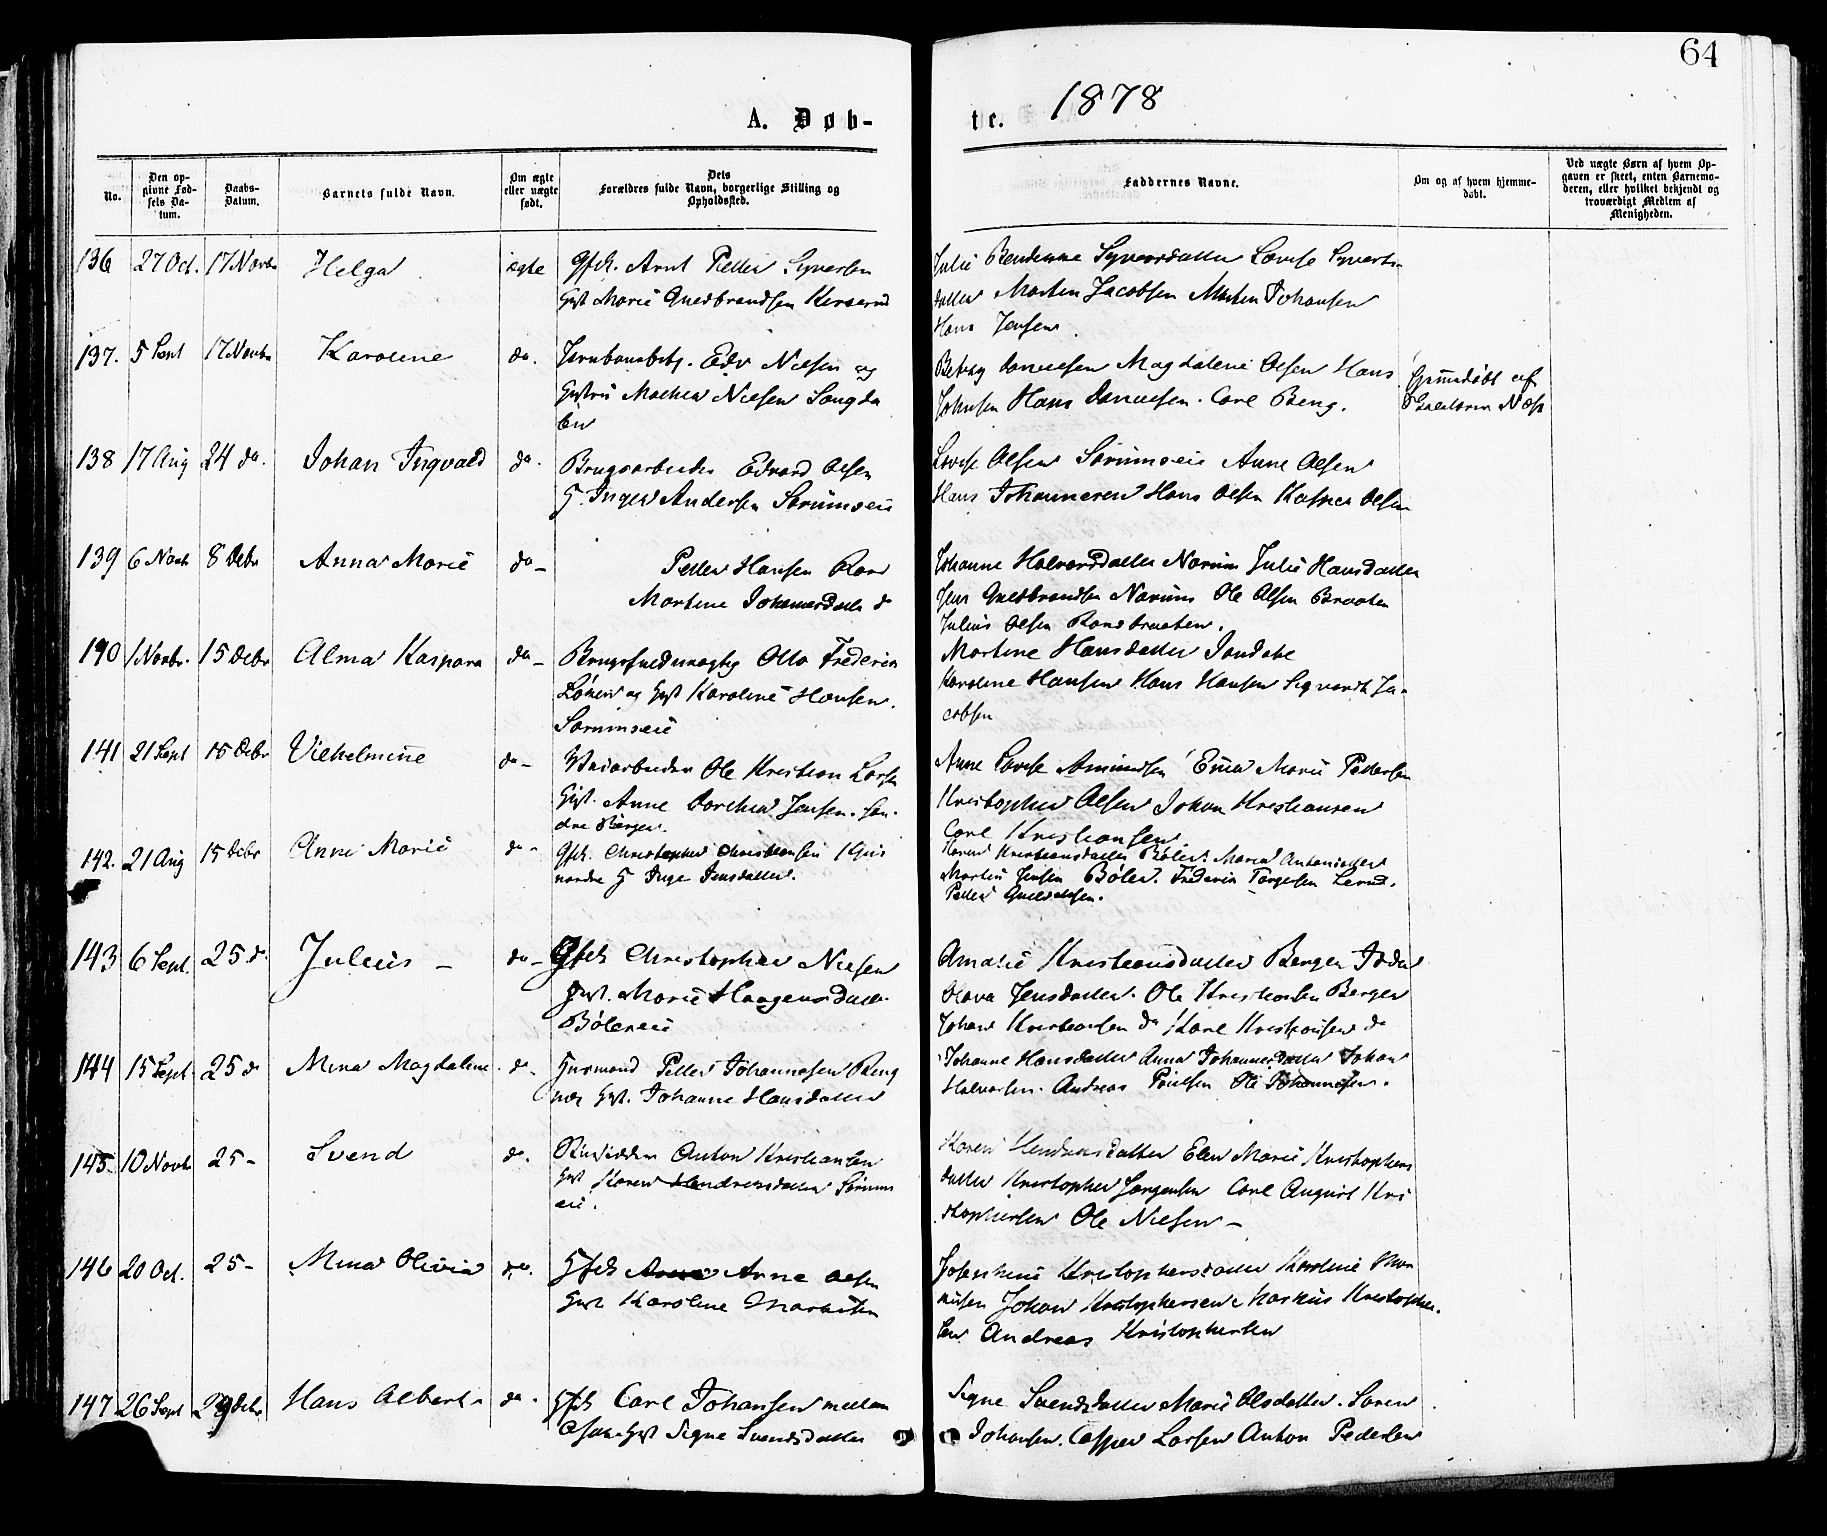 64
1878
A. Døb-
te.
No.
Den op-
givne Fød-
sels Da-
tum.
Daabs-
Datum.
Barnets fulde Navn.
Om ægte
eller uægte
født.
Dets
Forældres fulde Navn, borgerlige Stilling og
Opholdssted.
Faddernes Navne.
Om og af hvem hjemme-
døbt.
Ved uægte Børn af hvem Op-
gaven er skeet, enten Barnemo-
deren, eller hvilket bekjendt og
troværdigt Medlem af
Menigheden.
136 27 Oct. 17 Novbr Helga ægte
Gfdb. Arnt Petter Syversen
Gust Marie Guldbrandsen
Julie Syversdatter Lovise Syverts-
datter Morten Jacobsen Morten Johansen
Hans Jensen
137. 5 Sept 17 Novbr Karoline do.
Edv Nielsen og
Mathea Nielsen Songda
len
Danielsen Magdalene Olsen Hans
Johnsen Hans Danielsen. Carl Beng.
Hjemmedøbt af
138 17 Aug 24 do. Johan Ingvald do.
Brugsarbeider Edvard Olsen
G. Inger Andersen Sørumseie
Lovise Olsen Sørumseie Anne Olsen
Hans Johannesen Hans Olsen Kasper Olsen
139 6 Novb 8 Debr Anna Marie do-
Petter Hansen
Martine Johannesdatter
Johanne Halvorsdatter Norum Julie Hansdatter
Jens Guldbrandsen Norums Ole Olsen Braaten
Julius Olsen
190 1 Novbr. 15 Debr Alma Kaspara do-
Otto Frederik
og Gust Karoline Hansen.
Sørumseie
Martine Hansdatter
Karoline Hansen Hans Hansen Sigvardt Ja-
cobsen
141 21 Sept 15 Debr Vilhelmine do-
Ole Kristian Larsen
Gust. Anne Dorthea Jensen. Søn-
dre Berger.
Anne Lovise Amundsen Emma Marie Pettersen
Kristopher Olsen Johan Kristiansen
Carl Kristiansen
142. 21 Aug 15 Debr Anne Marie do-
Gfdb. Christopher Christiansen
nordre G Inger Jensdatter.
Karen Kristiansdatter Bøler. Maren Antonsdatter
Martin Jensen Bøler. Frederik Torgersen
Petter
143 6 Sept. 25 d. Julius - do-
Gfdb Christopher Nielsen
Gust. Marie Haagensdatt.
Bølereie
Amalie Kristiansdatter Berger
Olava Jensdatter. Ole Kristiansen Berger
Johan Kristiansen do Karl Kristiansen do
144 15 Sept 25 d Mina Magdaline do-
Petter Johannesen
Gust. Johanne Hansdatter
Johanne Hansdatter Anna Johannesdatter Johan
Halvorsen. Andreas Poulsen Ole Johannesen.
145. 10 Novb 25- Svend do.
Anton Kristiansen
Gust Karen Hendriksdatter Sørums
eie.
Karen Hendriksdatter Elen Marie Kristophers
datter Kristopher Jørgensen Carl August Kri
stophersen Ole Nielsen-
146 20 Oct. 25- Mina Olivia do.
Gfdb Arne Olsen
Gust Karoline
Josephine Kristophersdatter Karoline
Johan Kristophersen Markus Kristopher-
sen Andreas Kristophersen
147 26 Sept 29 Debr Hans Albert- do.
Gfdb Carl Johansen mellem
Gust Signe Svendsdatter
Signe Svendsdatter Marie Olsdatter. Søren
Johansen. Casper Larsen Anton Pedersen